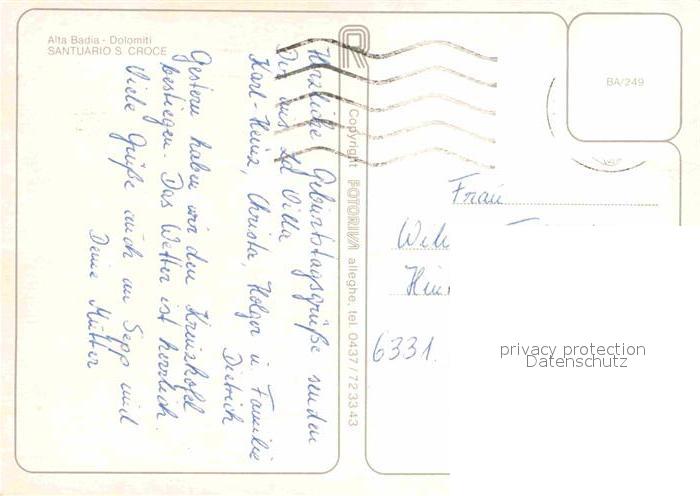 Alta Badia - Dolomiti
SANTUARIO S. CROCE
Herzliche Geburtstagsgrüße senden
Dir aus La Villa
Karl-Heinz, Christa, Holger u. Familie
Dietrich
Gestern haben wir den Kreuzkofel
bestiegen. Das Wetter ist herrlich.
Viele Grüße auch an Sepp und
Deine Mutter
Copyright FOTORIVA alleghe, tel. 0437/723343
BA/249
Frau
6331.
privacy protection
Datenschutz